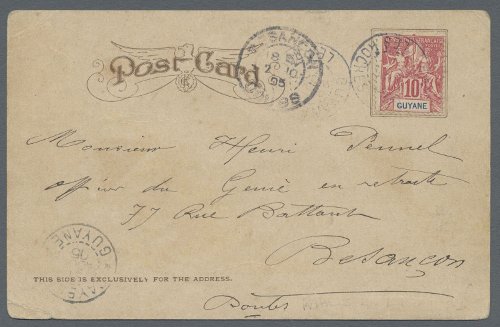 Post Card
10
GUYANE
Monsieur Henri Pennel
officier du Génie en retraite
77 Rue Battant
Besançon
GUYANE
THIS SIDE IS EXCLUSIVELY FOR THE ADDRESS.
Doubs